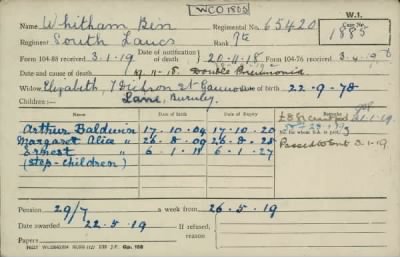 WCO1803
W.1.
Name Whitham Ben Regimental No. 65420 Case No. 1885
Regiment South Lancs Rank Pte
Form 104-88 received 3.1.19 Date of notification of death 20.11.18 Form 104-76 received 3.4.19
Date and cause of death 19.11.18. Double Pneumonia
Widow Elizabeth, 7 Dickson St Date of birth 22-9-78
Children:— Lane, Burnley.
Date of birth Date of expiry Remarks
Arthur Baldwin 17.10.04 17.10.20
Margaret Alice " 26.8.09 26.8.25
Ernest " 6.1.11 6.1.27 Passed to 3.1.19
(step-children)
Pension 29/7 a week from 26.5.19
Date awarded 22.5.19 If refused, reason
Papers Gp. 168